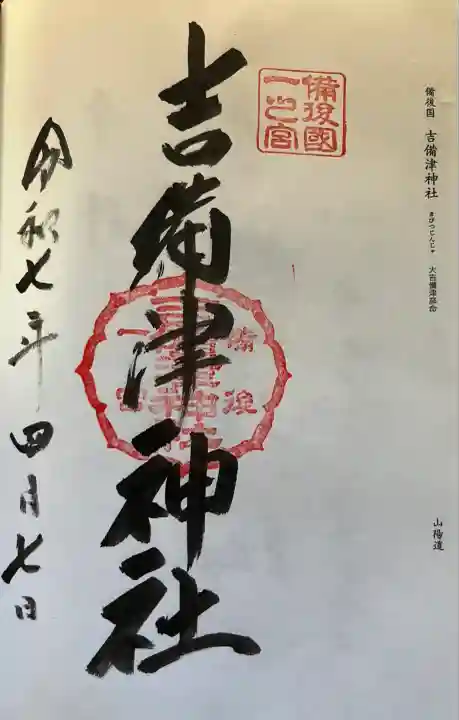 備後国 吉備津神社 きびつじんじゃ 大吉備津彦命
山陽道
備後國
一之宮
吉備津神社
備後
一宮
吉備津神社
令和七年四月七日